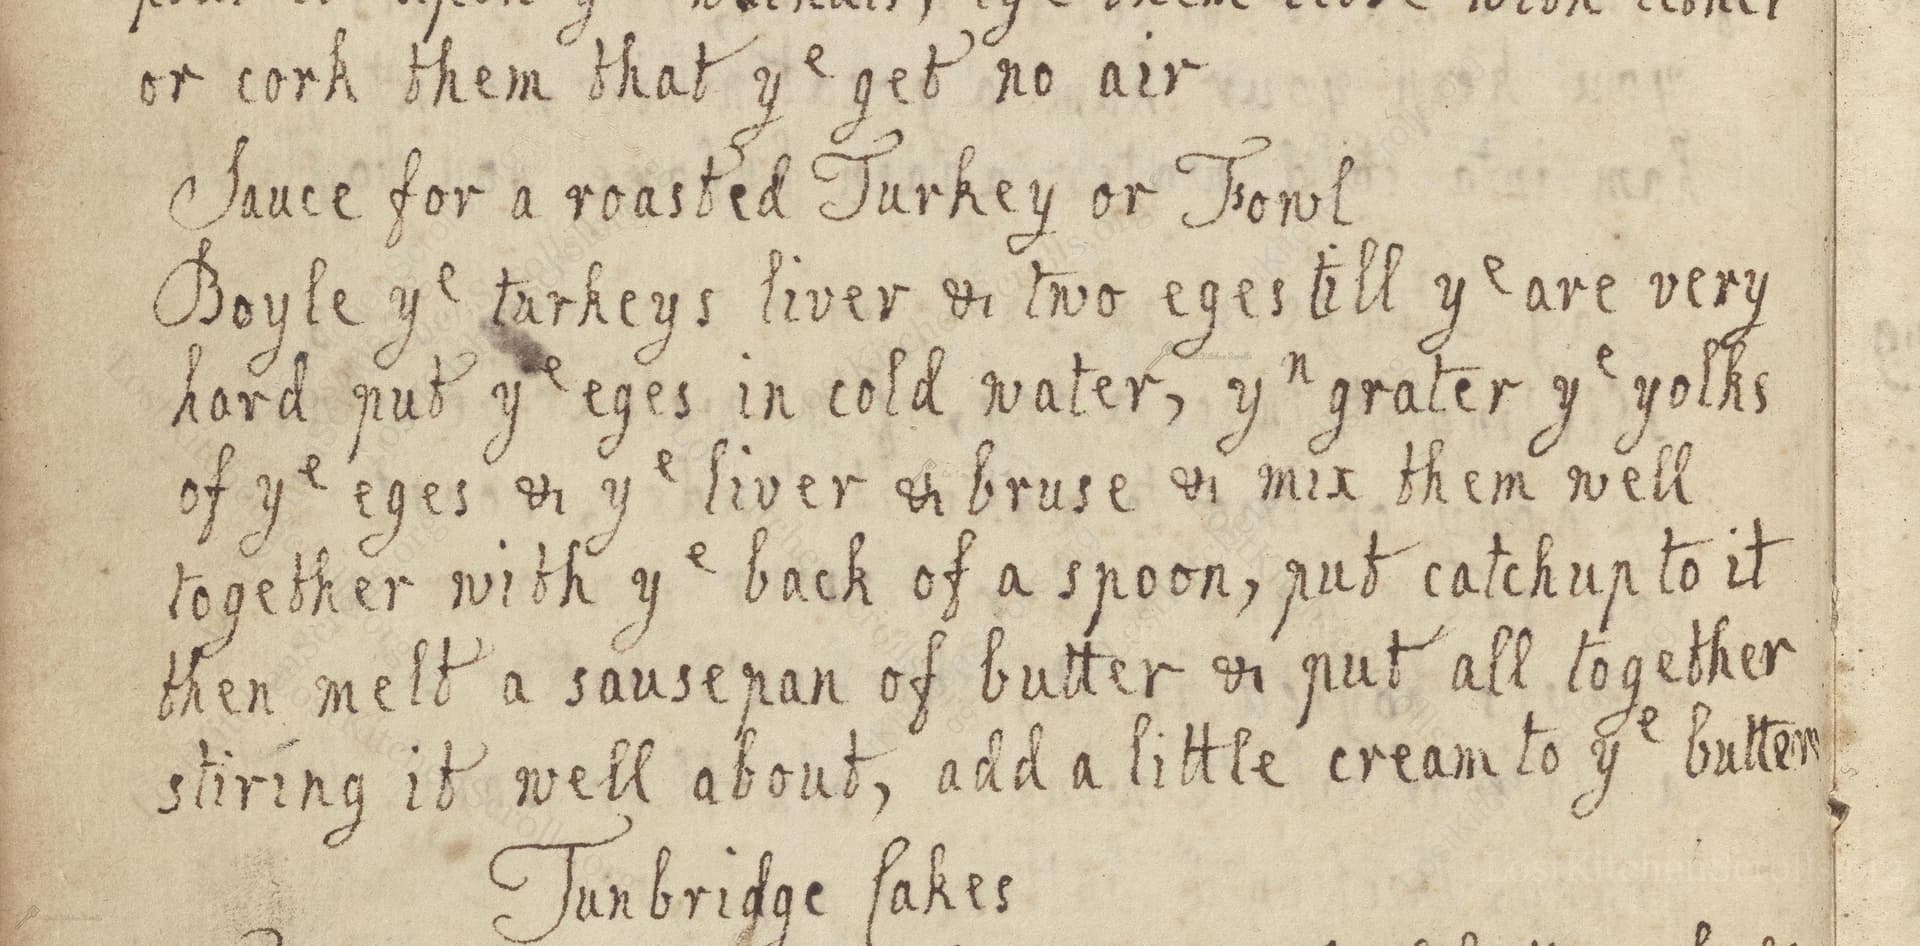 or cork them that yᵉ get no air
Sauce for a roasted Turkey or Fowl
Boyle yᵉ turkeys liver & two eges till yᵉ are very
hard put yᵉ eges in cold water, yⁿ grater yᵉ yolks
of yᵉ eges & yᵉ liver & bruse & mix them well
together with yᵉ back of a spoon, put catchup to it
then melt a sausepan of butter & put all together
stiring it well about, add a little cream to yᵉ butter
Tunbridge Cakes